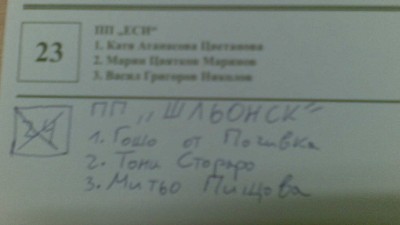 23
ПП „ЕСИ“
1. Катя Атанасова Цветанова
2. Марин Цвятков Маринов
3. Васил Григоров Николов
24
ПП „ШЛЬОНСК“
1. Гошо от Почивка
2. Тони Стораро
3. Митьо Пищова